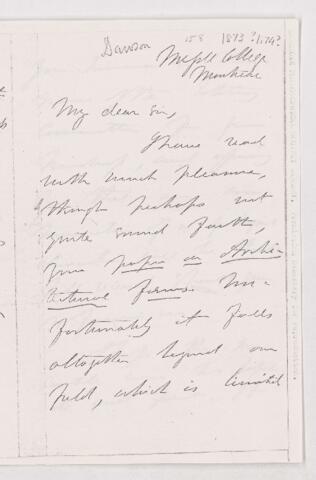 Dawson 158 1873?/1174?
McGill College
Montreal
My dear Sir,
I have read
with much pleasure,
though perhaps not
quite sound faith,
your paper on Archi-
tectural forms. Un-
fortunately it falls
altogether beyond our
field, which is limited